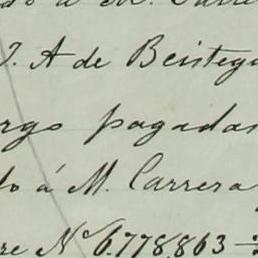 do á M. Carre
J. A de Beistegu
rgo pagadas
do á M. Carrera
re Nº 6.778.863